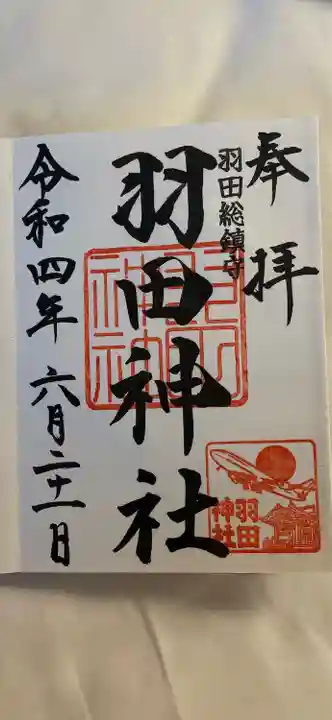 奉拝
羽田総鎮守
羽田神社
令和四年六月二十一日
羽田
神社